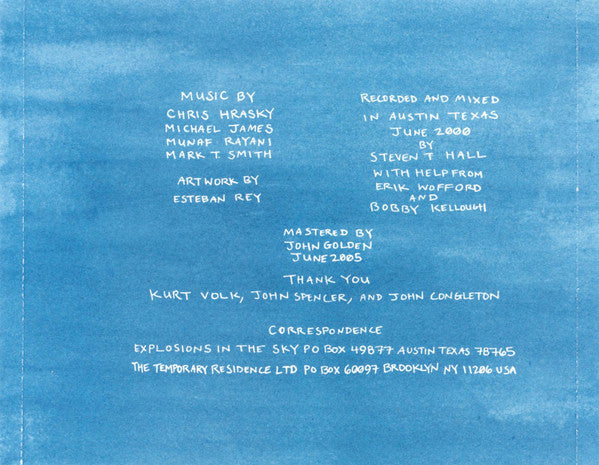 MUSIC BY
CHRIS HRASKY
MICHAEL JAMES
MUNAF RAYANI
MARK T. SMITH
ARTWORK BY
ESTEBAN REY
RECORDED AND MIXED
IN AUSTIN TEXAS
JUNE 2000
BY
STEVEN T HALL
WITH HELP FROM
ERIK WOFFORD
AND
BOBBY KELLOUGH
MASTERED BY
JOHN GOLDEN
JUNE 2005
THANK YOU
KURT VOLK, JOHN SPENCER, AND JOHN CONGLETON
CORRESPONDENCE
EXPLOSIONS IN THE SKY PO BOX 49877 AUSTIN TEXAS 78765
THE TEMPORARY RESIDENCE LTD PO BOX 60097 BROOKLYN NY 11206 USA